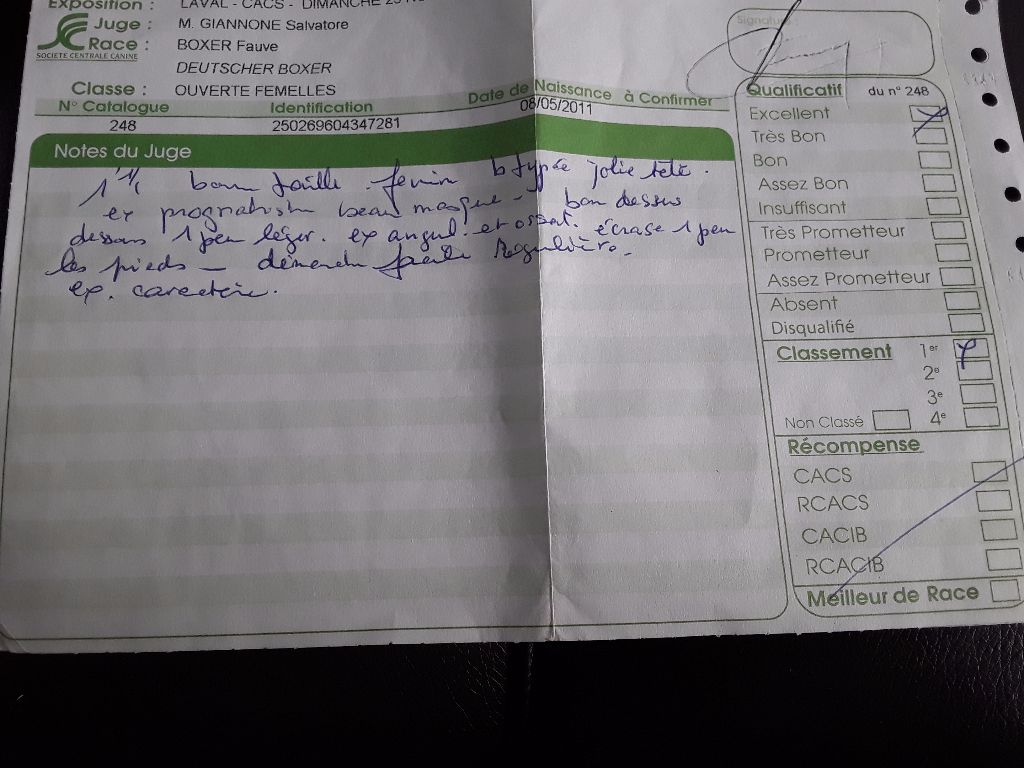 Exposition : LAVAL - CACS - DIMANCHE
Juge : M. GIANNONE Salvatore
Race : BOXER Fauve
SOCIETE CENTRALE CANINE
DEUTSCHER BOXER
Classe : OUVERTE FEMELLES
N° Catalogue Identification Date de Naissance à Confirmer
248 250269604347281 08/05/2011
Notes du Juge
1 1/2 bonne taille. féminin b typée jolie tête.
ex prognatisme beau masque - bon dessus
dessous 1 peu léger. ex angul. et ossat. écrase 1 peu
les pieds - démarche facile régulière.
ex. caractère.
Signature
Qualificatif du n° 248
Excellent
Très Bon
Bon
Assez Bon
Insuffisant
Très Prometteur
Prometteur
Assez Prometteur
Absent
Disqualifié
Classement 1er
2e
3e
Non Classé 4e
Récompense
CACS
RCACS
CACIB
RCACIB
Meilleur de Race